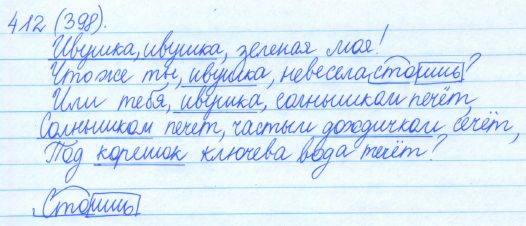 412 (398).
Ивушка, ивушка, зеленая моя!
Что же ты, ивушка, невесела стоишь?
Или тебя, ивушка, солнышком печёт,
Солнышком печет, частым дождичком сечёт,
Под корешок ключева вода течёт?
Стоишь